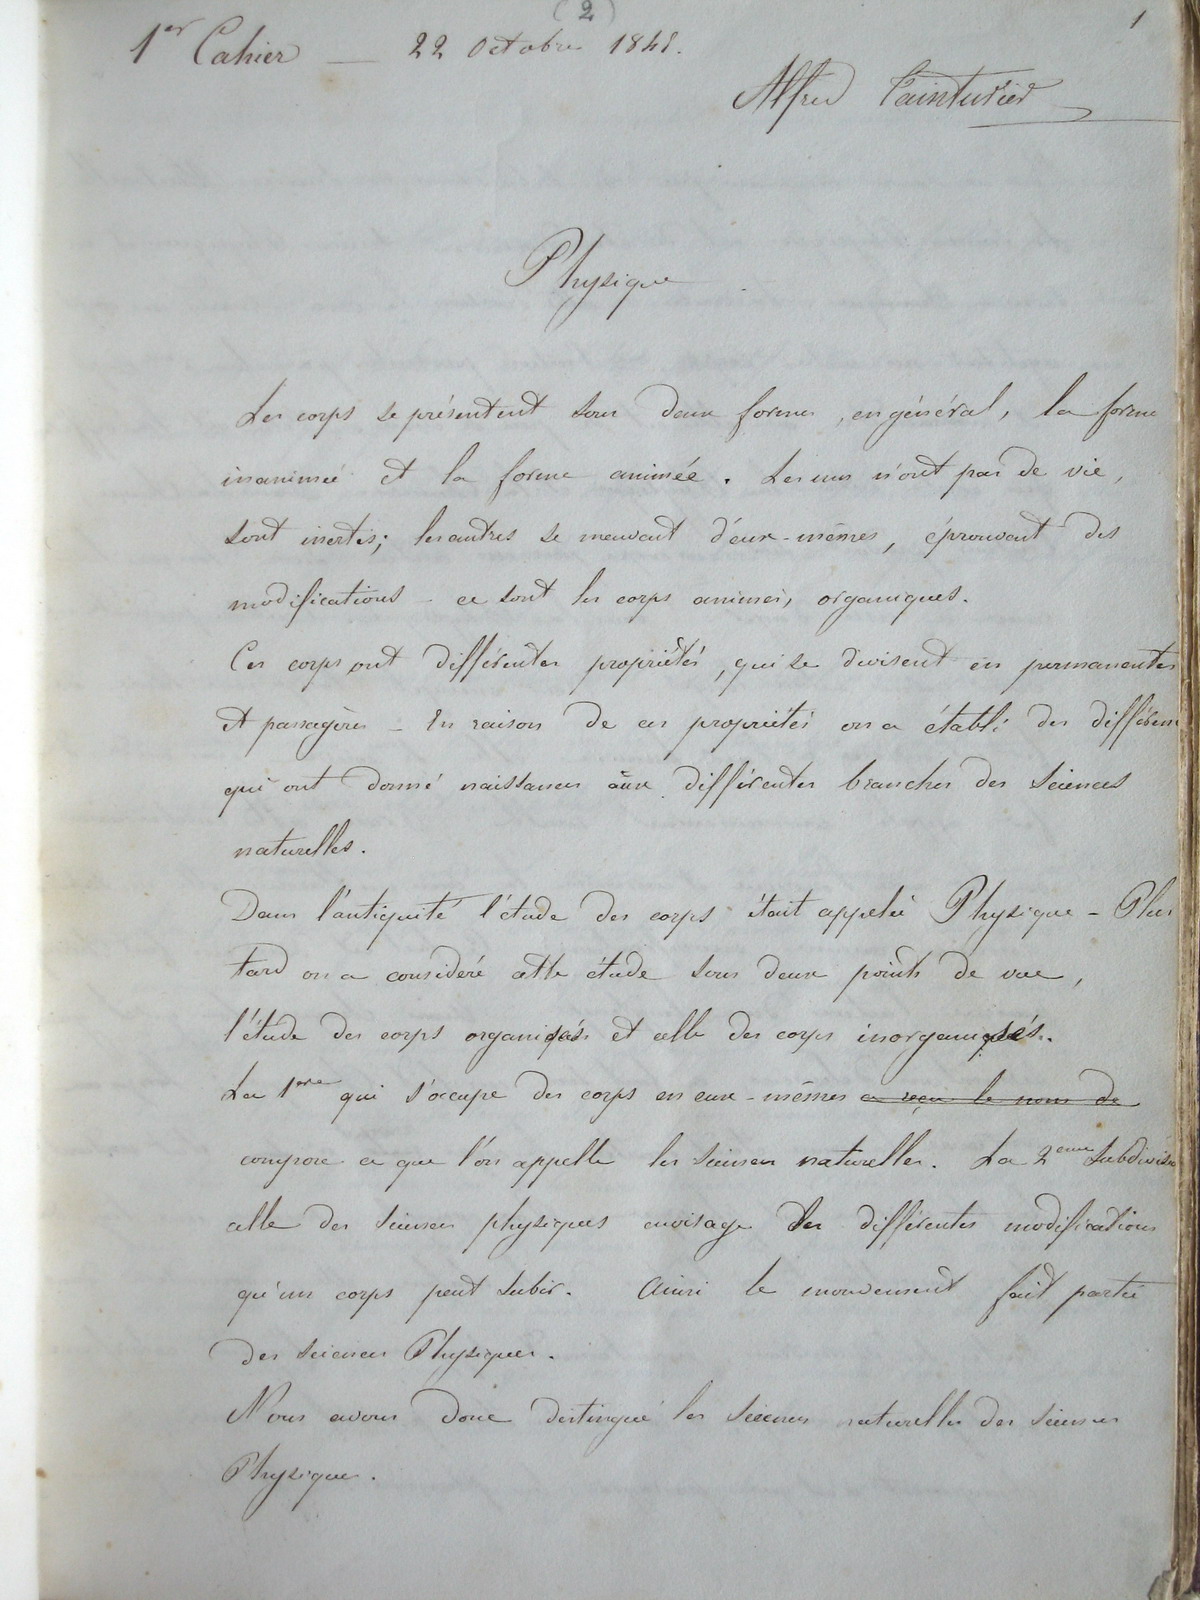 (2)
1
1er Cahier — 22 Octobre 1848.
Alfred Painturier
Physique
Les corps se présentent sous deux formes, en général, la forme
inanimée et la forme animée. Les uns n'ont pas de vie,
sont inertes; les autres se meuvent d'eux-mêmes, éprouvent des
modifications - ce sont les corps animés, organiques.
Ces corps ont différentes propriétés, qui se divisent en permanentes
et passagères - En raison de ces propriétés on a établi des différen
qui ont donné naissances aux différentes branches des Sciences
naturelles.
Dans l'antiquité l'étude des corps était appelée Physique - Plus
tard on a considéré cette étude sous deux points de vue,
l'étude des corps organisés et celle des corps inorganisés.
La 1ere qui s'occupe des corps en eux-mêmes a reçu le nom de
compose ce que l'on appelle les sciences naturelles. La 2eme Subdivisio
celle des sciences physiques envisage les différentes modifications
qu'un corps peut subir. Ainsi le mouvement fait partie
des sciences Physiques.
Nous avons donc distingué les sciences naturelles des sciences
Physique.